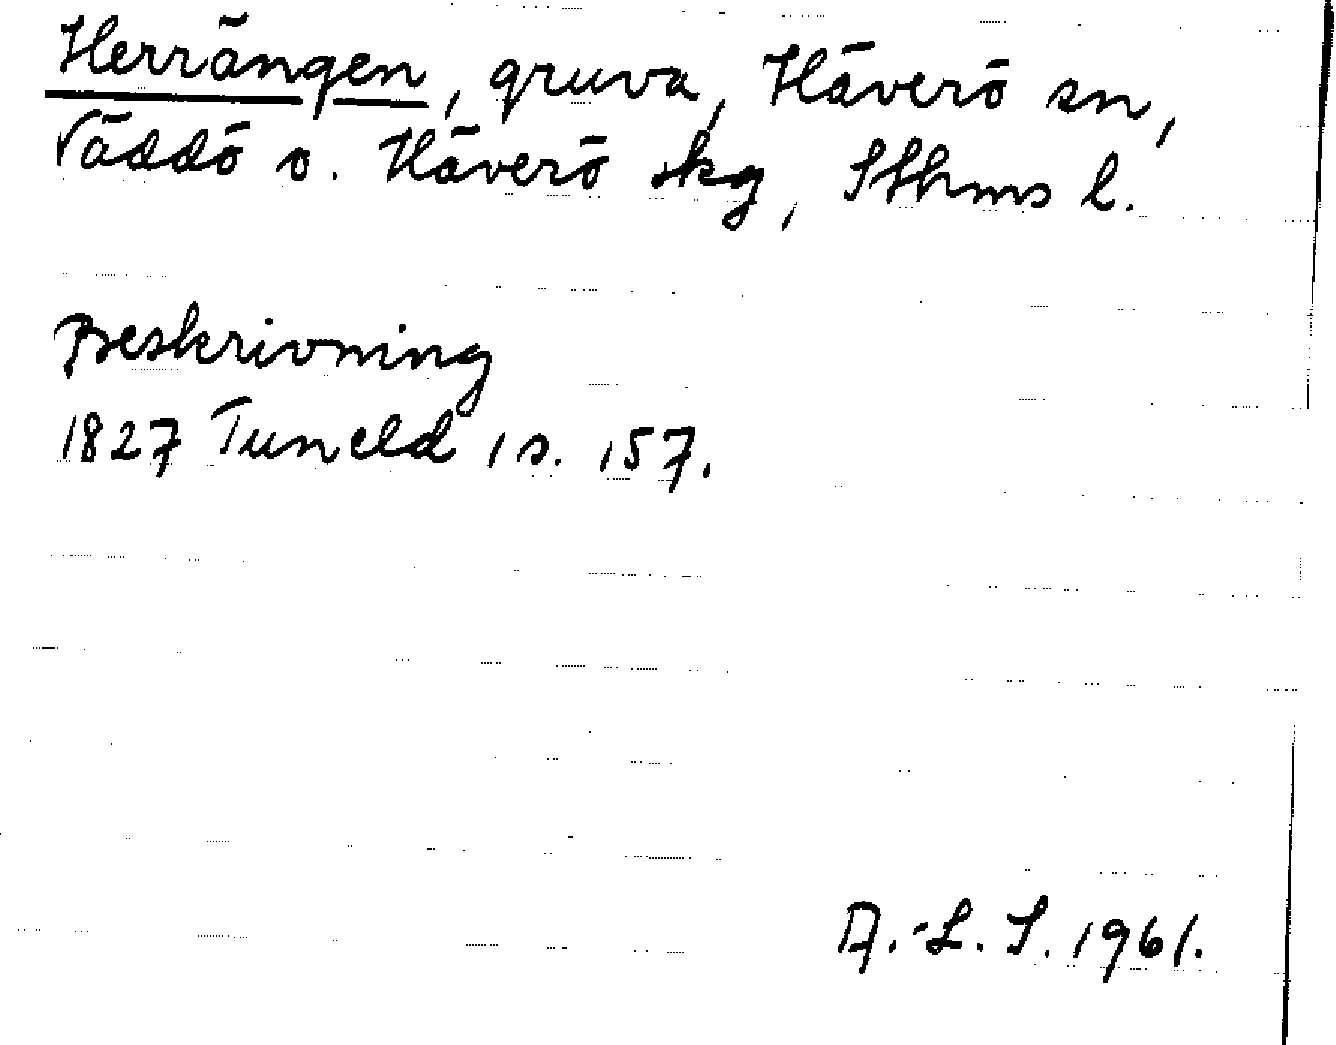 Herrängen, gruva, Häverö sn,
Väddö o. Häverö skg, Sthms l.
Beskrivning
1827 Tuneld 1 s. 157.
A.-L. S. 1961.